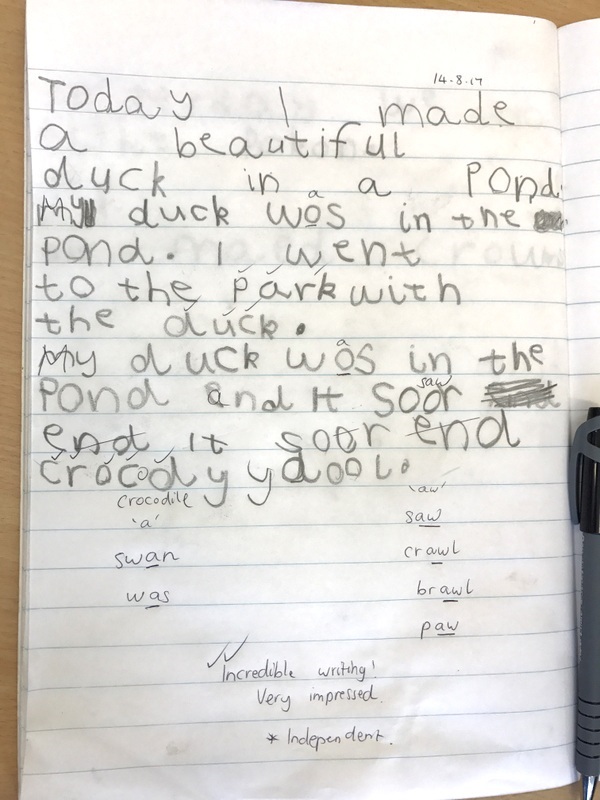 14.8.17
Today I made
a beautiful
duck in a Pond.
a
My duck wos in the
pond. I went
to the park with
the duck.
a
My duck wos in the
saw
Pond and It soor
end It soor end
crocody ydool.
crocodile 'aw'
'a' saw
swan crawl
was brawl
paw
Incredible writing!
Very impressed.
* Independent.